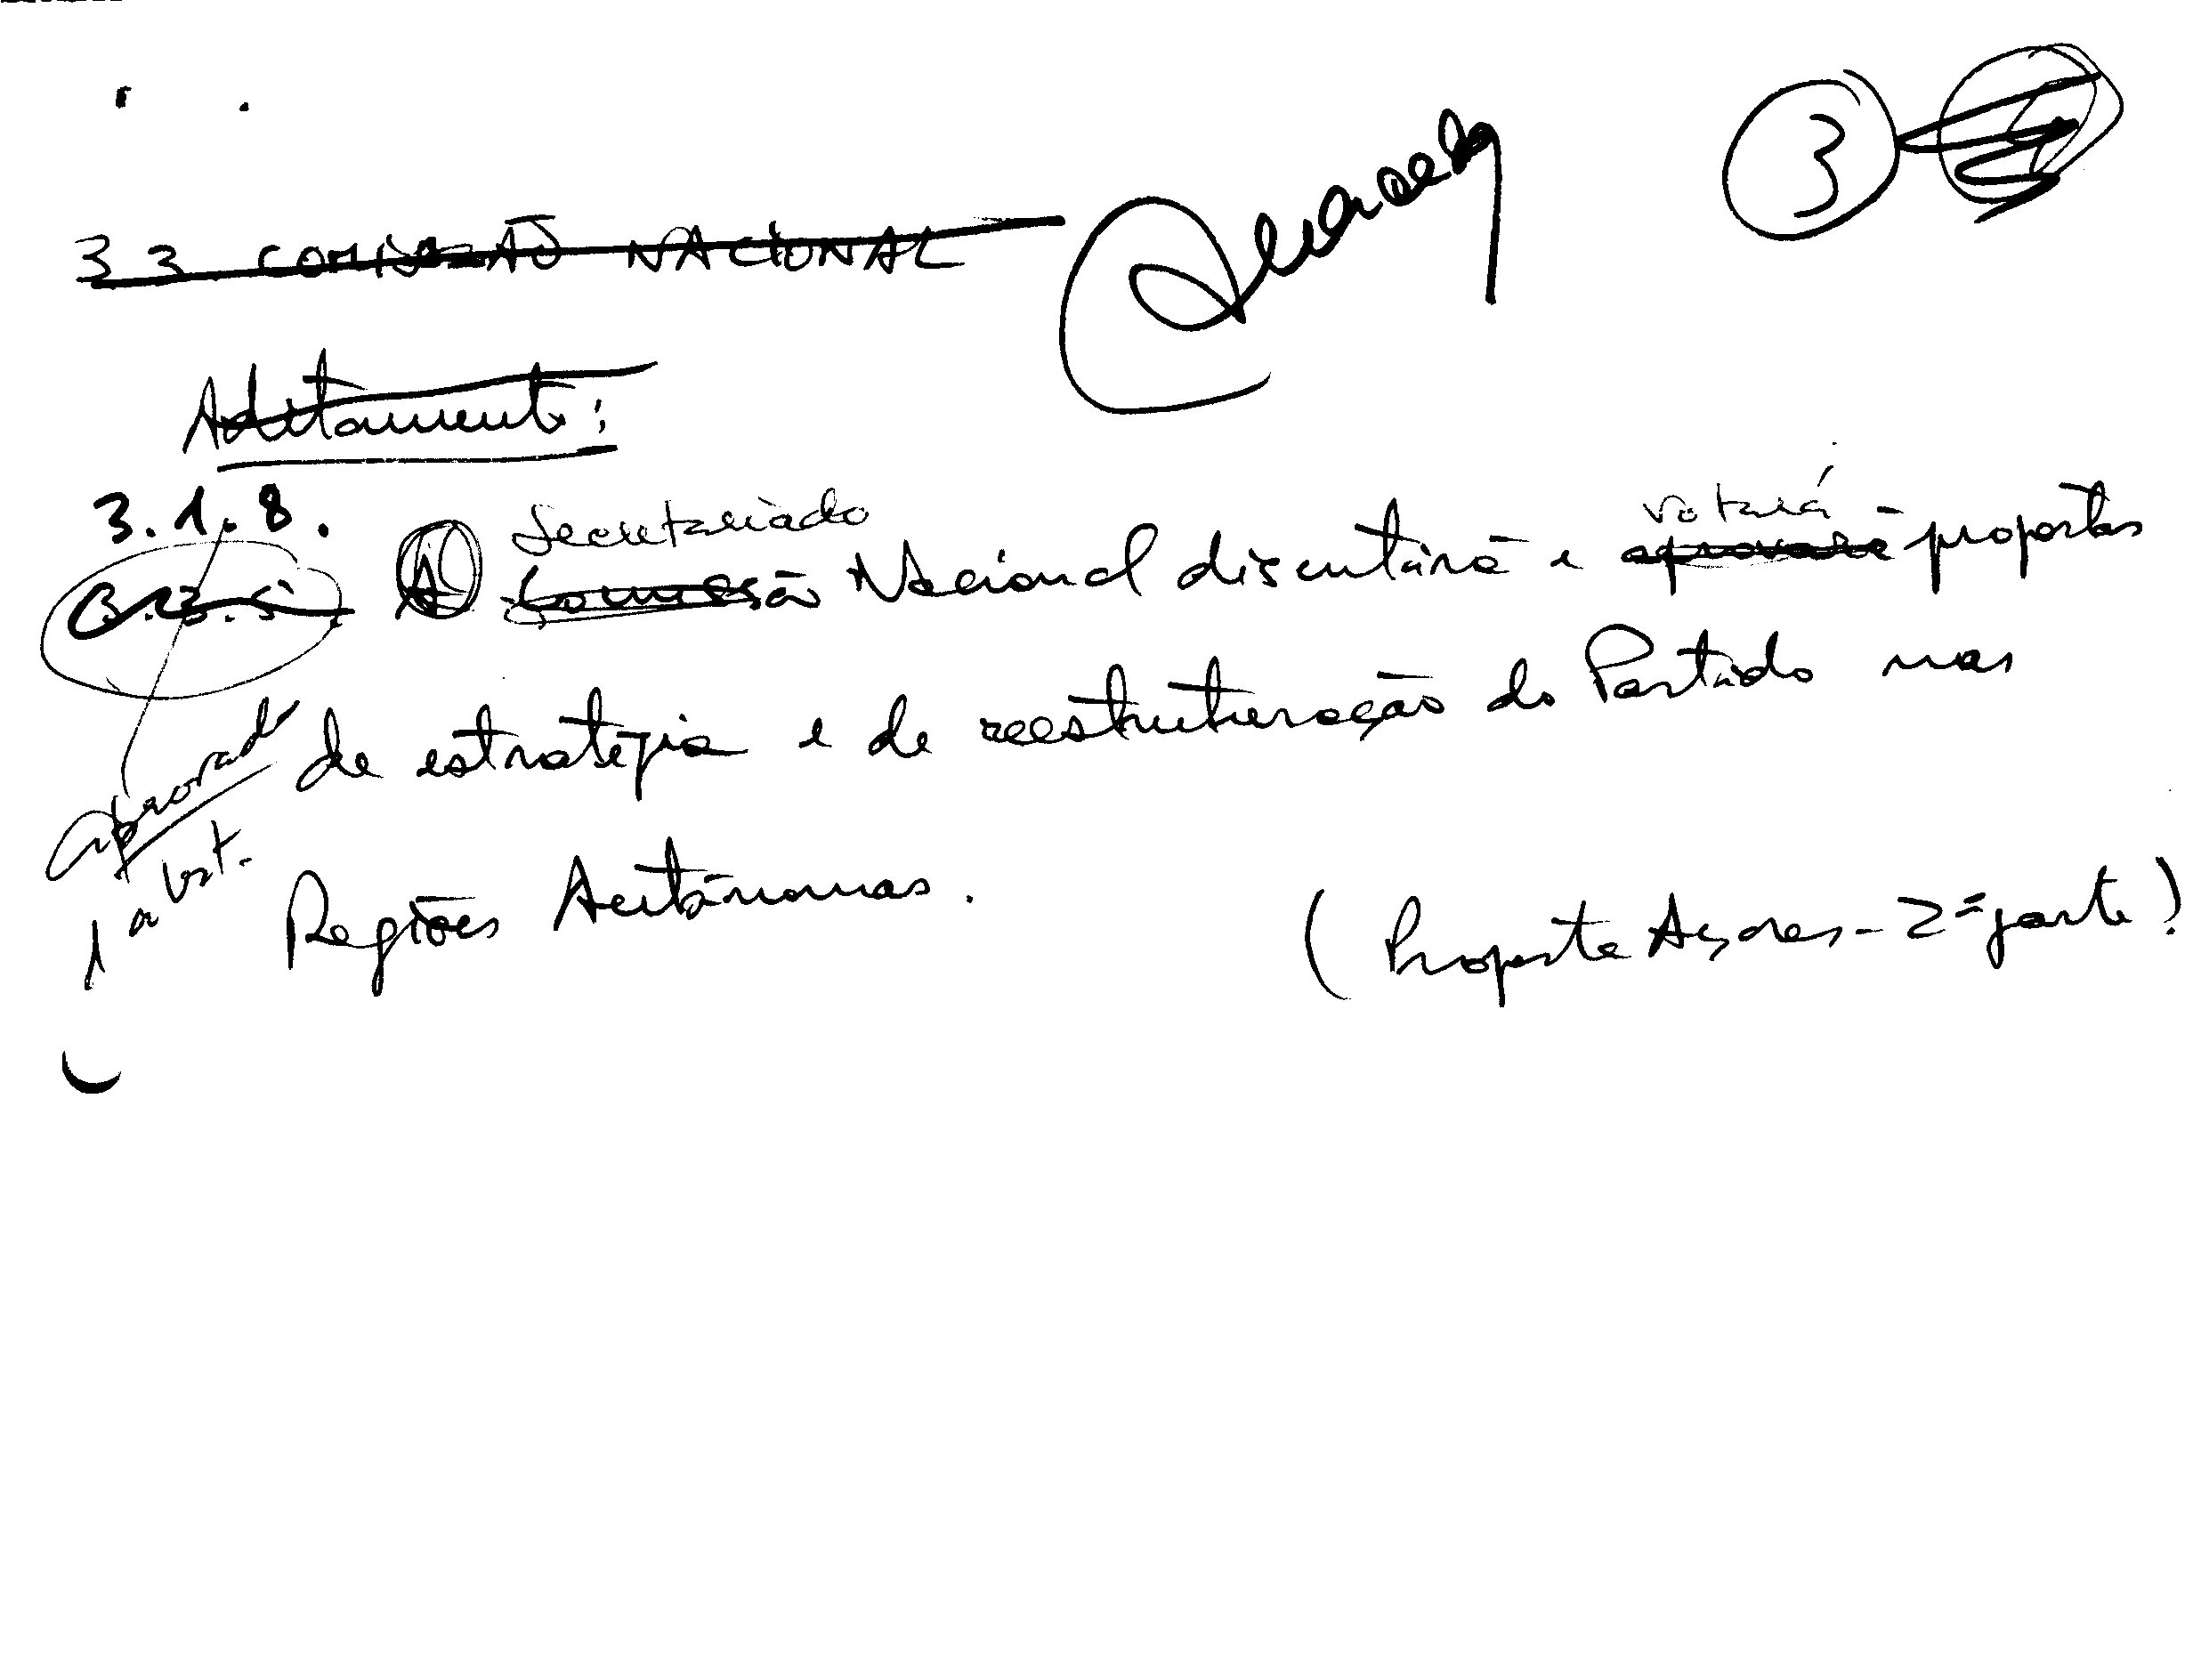 3
3 3 COMISSÃO NACIONAL
Aditamento:
3.1.8. Secretariado votará
3.3.5. A O Comissão Nacional discutirá e aprovará propostas
de estratégia e de reestruturação do Partido nas
aprovado
1ª vot.
Regiões Autónomas. (Proposta Açores - 2ª parte)